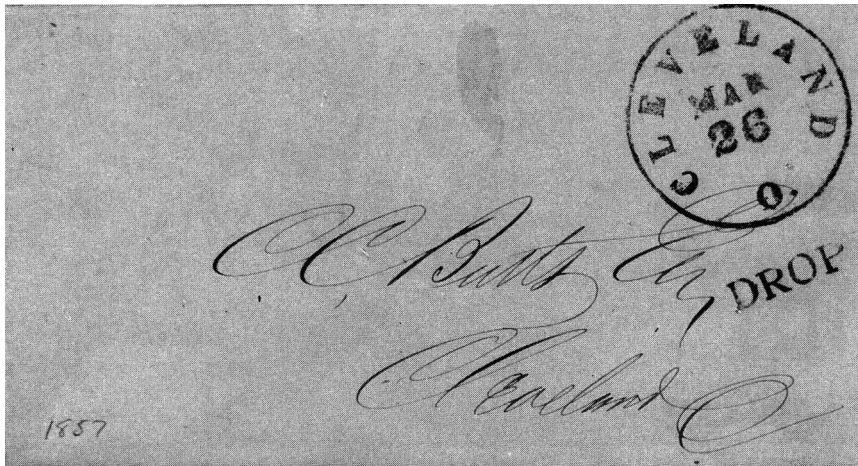 CLEVELAND O.
MAR
26
DROP
C. Butts Esq
Cleveland O
1857